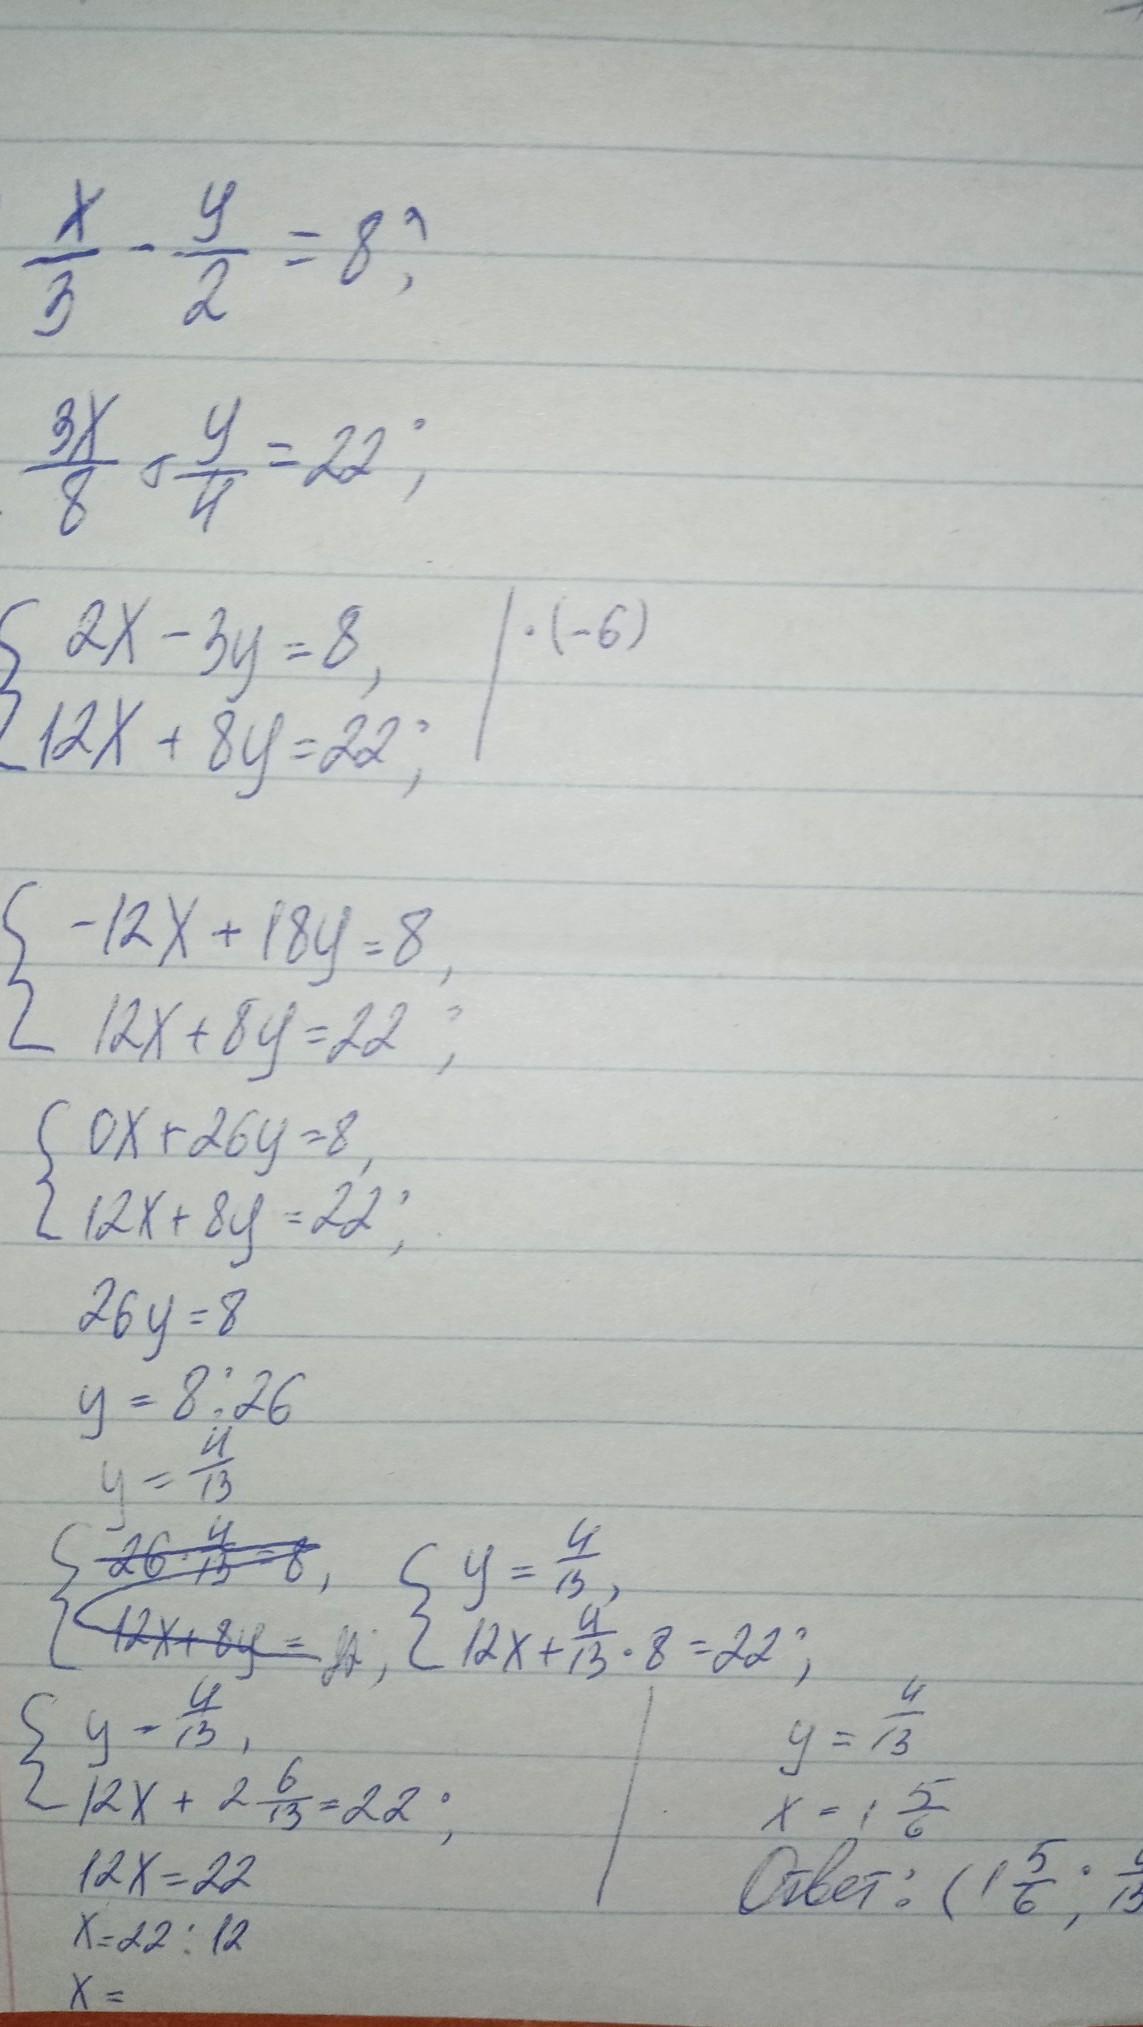 x/3 - y/2 = 8;
3x/8 - y/4 = 22;
{ 2x - 3y = 8, | · (-6)
12x + 8y = 22;
{ -12x + 18y = 8,
12x + 8y = 22;
{ 0x + 26y = 8,
12x + 8y = 22;
26y = 8
y = 8 : 26
y = 4/13
{ 26 · 4/13 = 8, { y = 4/13,
12x + 8y = 22; 12x + 4/13 · 8 = 22;
{ y = 4/13,
12x + 2 6/13 = 22;
12x = 22
x = 22 : 12
x =
y = 4/13
x = 1 5/6
Ответ: (1 5/6; 4/13